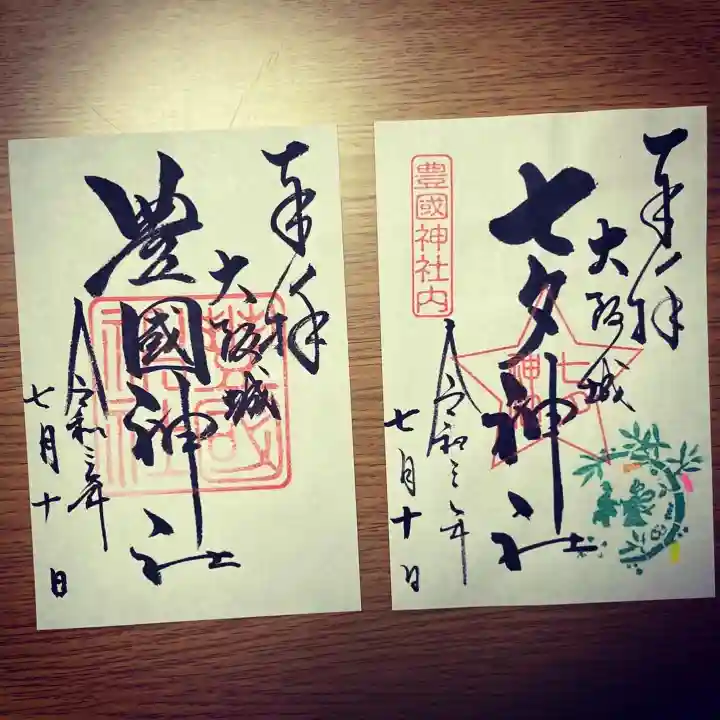 奉拝
大阪城
豊國神社
令和三年
七月十日
豊國神社
奉拝
大阪城
七夕神社
豊國神社内
七夕神社
令和三年
七月十日